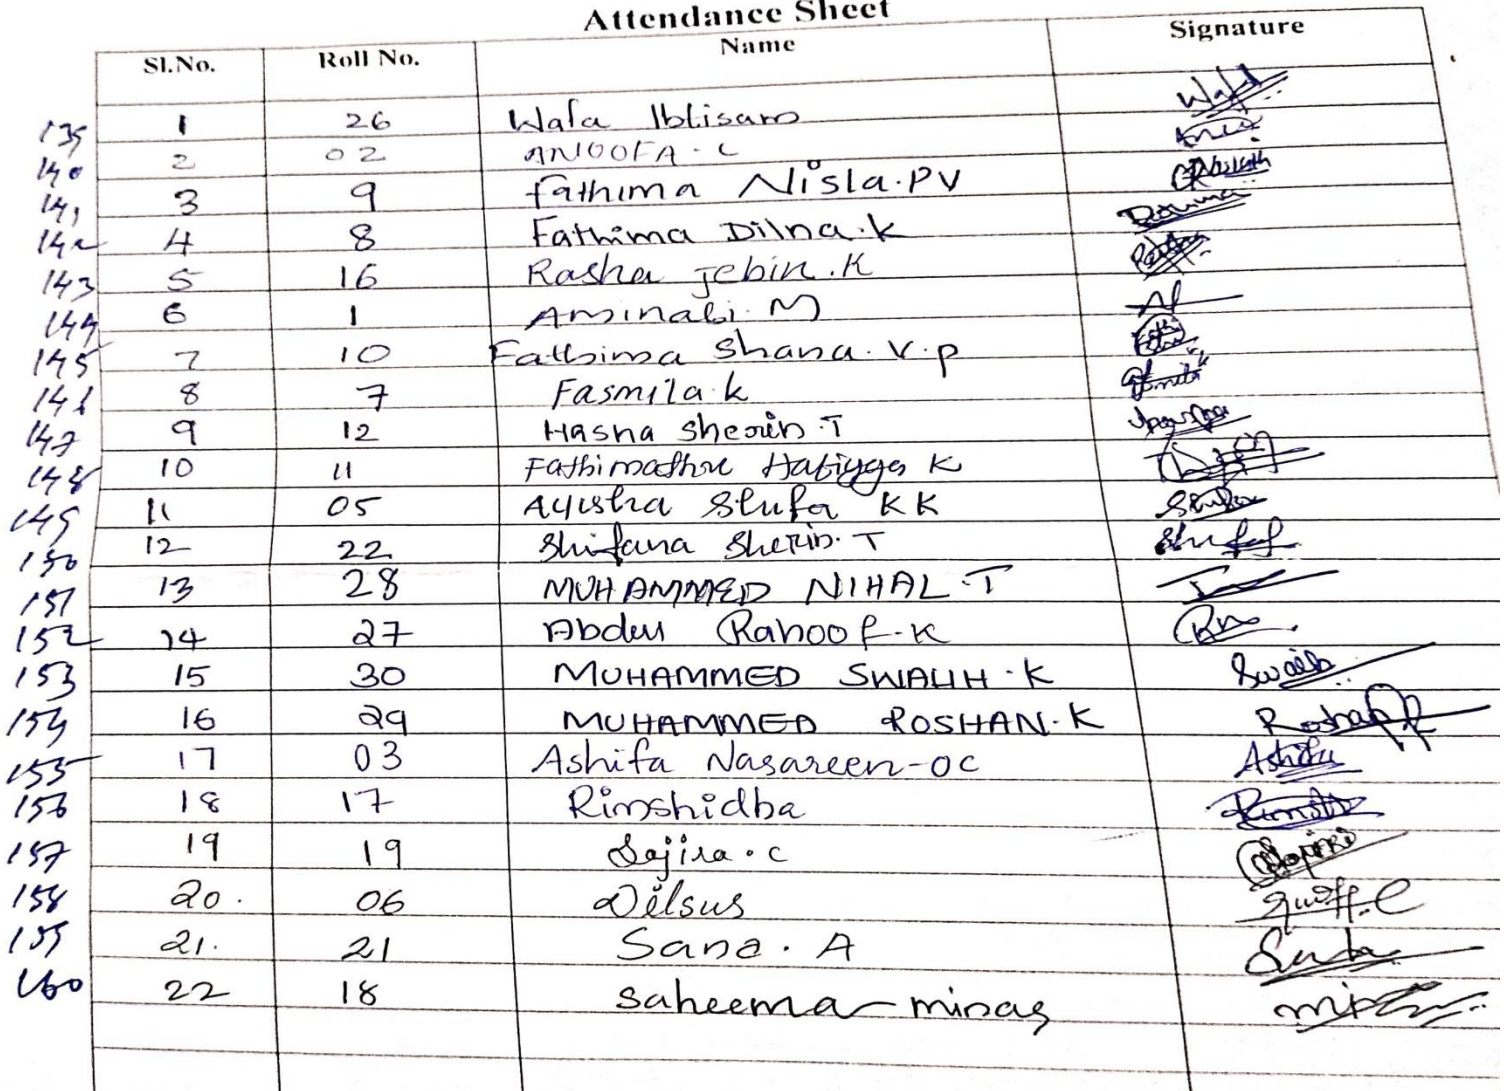 Attendance Sheet
Sl.No. Roll No. Name Signature
139 1 26 Wafa Ibtisam
140 2 02 ANOOFA . C
141 3 9 Fathima Nisla.PV
142 4 8 Fathima Dilna.K
143 5 16 Rasha Jebin.K
144 6 1 Aminabi.M
145 7 10 Fathima Shana.V.P
146 8 7 Fasmila.K
147 9 12 Hasna Sherin.T
148 10 11 Fathimathu Habiyya K
149 11 05 Ayisha Stufa KK
150 12 22 Shifana Sherin.T
151 13 28 MUHAMMED NIHAL.T
152 14 27 Abdul Rahoof.K
153 15 30 MUHAMMED SWALIH.K Swalih
154 16 29 MUHAMMED ROSHAN.K Roshan
155 17 03 Ashifa Nasareen-OC Ashifa
156 18 17 Rimshidha
157 19 19 Sajira.C
158 20. 06 Dilsus
159 21. 21 Sana. A
160 22 18 Saheema minas